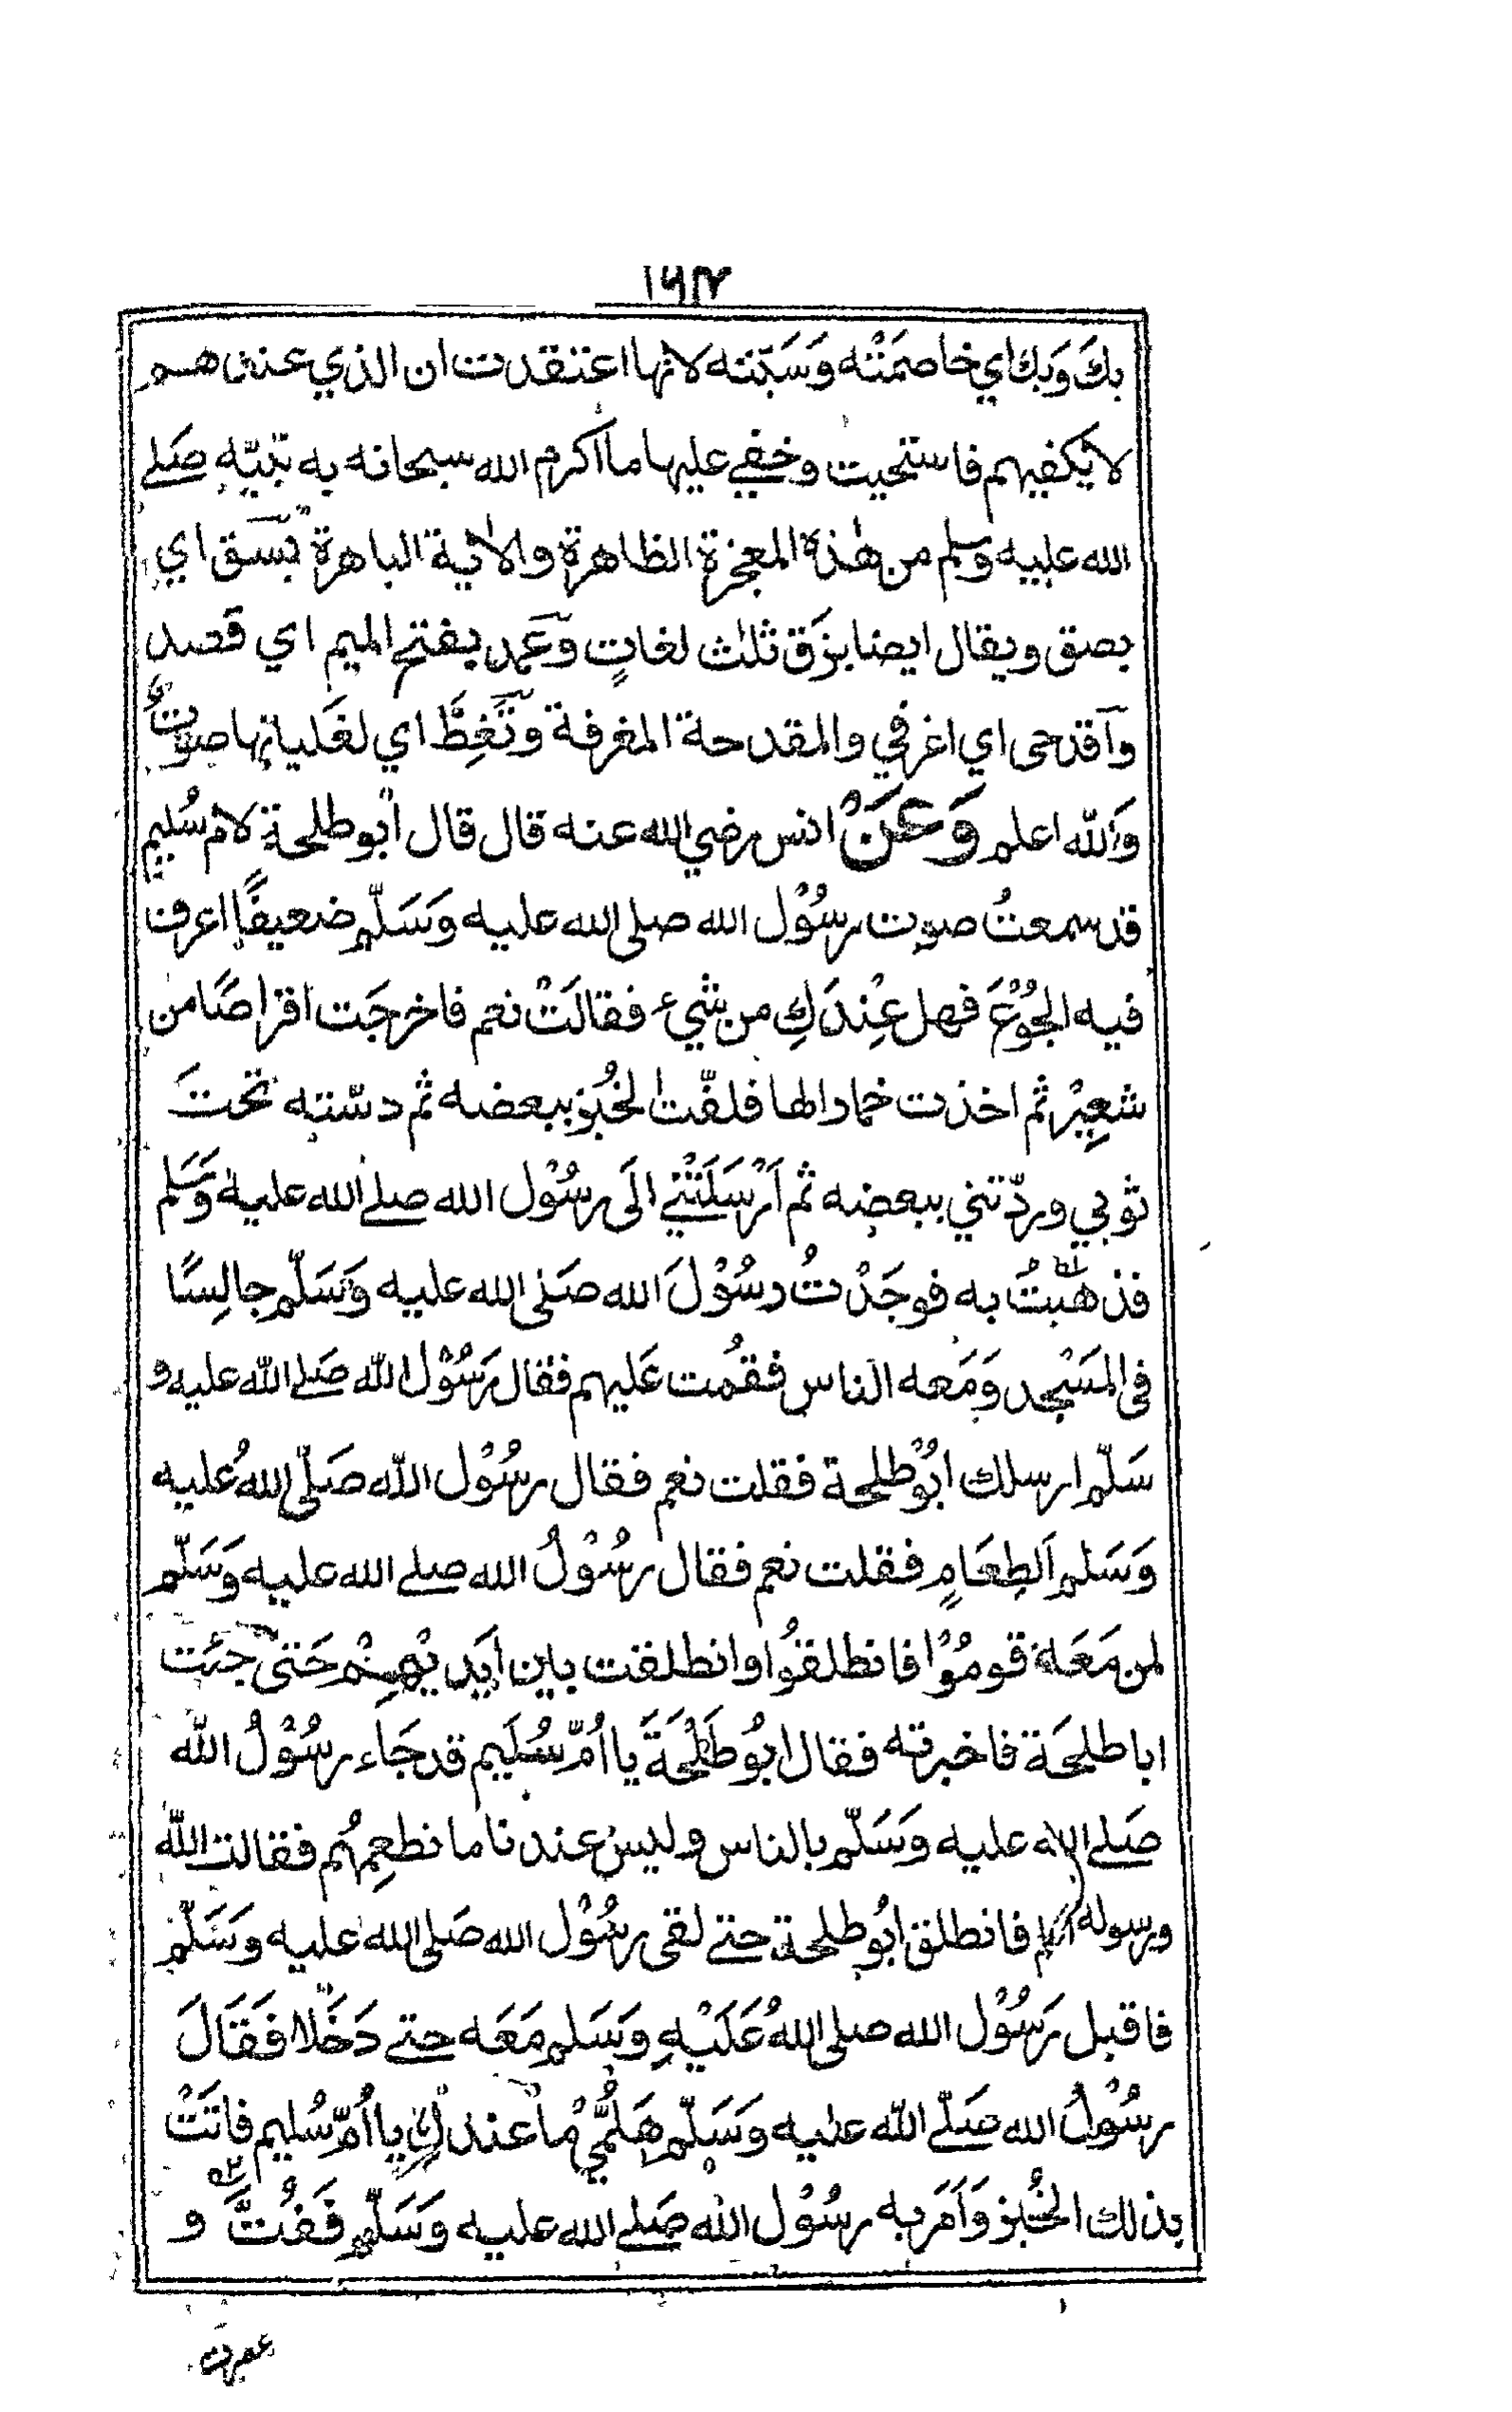 ١٦٢
بكَ وَبك اي خاصمَتْه وَسَبّته لانها اعتقدت ان الذي عندهم
لا يكفيهم فاستحيت وخفي عليها ما اكرم الله سبحانه به نبيّه صَلے
الله عليه وسلم من هٰذه المعجزة الظاهرة والاٰية الباهرة بَسَق اي
بصق ويقال ايضا بزَق ثلٰث لغاتٍ وَعَمد بفتح الميم اي قصد
وآقدحى اي اغرفي والمقدحة المغرفة وتَغِطَّ اي لغَليانها صوتٌ
وَالله اعلم وَعَنْ انس رضي الله عنه قال قال اَبو طلحة لام سُليم
قد سمعتُ صوت رسُوْل الله صلى الله عليه وَسَلّم ضعيفًا اعرف
فيه الجُوْعَ فهل عِنْدَكِ من شيء فقالَتْ نعم فاخرجَت اقراصًا من
شعِيْر ثم اخذت خمارا لها فلفّت الخُبْز ببعضه ثم دسّته تحتَ
ثوبي وردّتني ببعضه ثم اَرْسَلَتْنے الَى رسُوْل الله صلے الله عليه وَسَلم
فذهَبْتُ به فوجَدْتُ رسُوْلَ الله صَلى الله عليه وَسَلّم جالِسًا
فى المَسْجد وَمَعه الناس فقُمت عَليهم فقال رَسُوْل الله صَلے الله عليه و
سَلّم ارسلك ابُوْ طلحة فقلت نعم فقال رسُوْل الله صَلّى اللهُ عليه
وَسَلم اَلطِعَامٍ فقلت نعم فقال رسُوْلُ الله صلے الله عليه وَسَلّم
لمن مَعَهٗ قومُوْا فانطلقوُا وانطلقت بين اَيديْهِمْ حَتى جئت
ابا طلحَة فاخبرته فقال ابُو طَلْحَةَ يا اُمّ سُلَيم قد جَاء رسُوْلُ الله
صَلے الله عليه وَسَلّم بالناس وليس عندنا ما نطعِمهُم فقالت الله
ورسوله اعلم فانطلق ابُو طلحة حتے لقى رسُوْل الله صَلى الله عليه وَسَلّم
فاقبل رَسُوْل الله صلى اللهُ عَلَيْهِ وَسَلم مَعَه حتے دَخَلا فَقَالَ
رسُوْلُ الله صَلّے الله عليه وَسَلّم هَلُمّي مَا عندكِ يا اُمّ سُليم فاتَتْ
بذلك الخُبْز وَاَمَر به رسُوْل الله صَلے الله عليه وَسَلّم فَفُتَّ و
عصرت